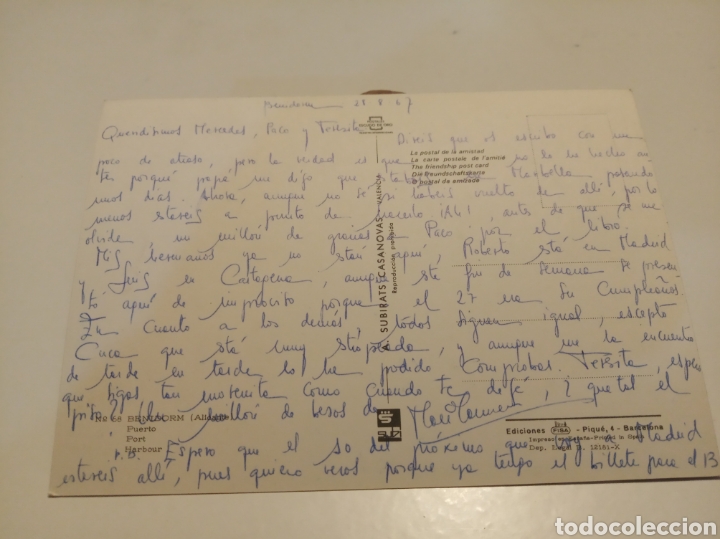 Benidorm 29 8 67
Queridísimos Mercedes, Paco y Teresita. Diréis que os escribo con un
poco de atraso, pero la verdad es que no lo he hecho an
tes porqué papá me dijo que estabais Marbella pasando
unos días. Ahora, aunque no se si habeis vuelto de allí, por lo
menos estareis a punto de hacerlo ¡Ah!, antes de que se me
olvide, un millón de gracias a Paco por el libro.
Mis hermanos ya no están aquí, Roberto está en Madrid
y Luis en Cartagena, aunque este fin de semana se presen
tó aquí de improviso porque el 27 era su cumpleaños.
En cuanto a los demás, todos siguen igual, excepto
Cuca que está muy estropeada, y aunque me la encuentro
de tarde en tarde lo he podido comprobar. Teresita, espero
que sigas tan morenita como cuando te dejé, ¿ que tal el
piso? Un millón de besos de Mari Carmen
P.D. Espero que el so del próximo que voy Madrid
esteis allí, pues quiero veros porque ya tengo el billete para el 13
La postal de la amistad
La carte postale de l'amitié
The friendship post card
Die Freundschaftskarte
O postal da amizade
A. SUBIRATS CASANOVAS - VALENCIA
Reproducción prohibida
No 68 BENIDORM (Alicante)
Puerto
Port
Harbour
Ediciones FISA - Piqué, 4 - Barcelona
Impreso en España
Dep. Legal B. 12161-X
todocoleccion